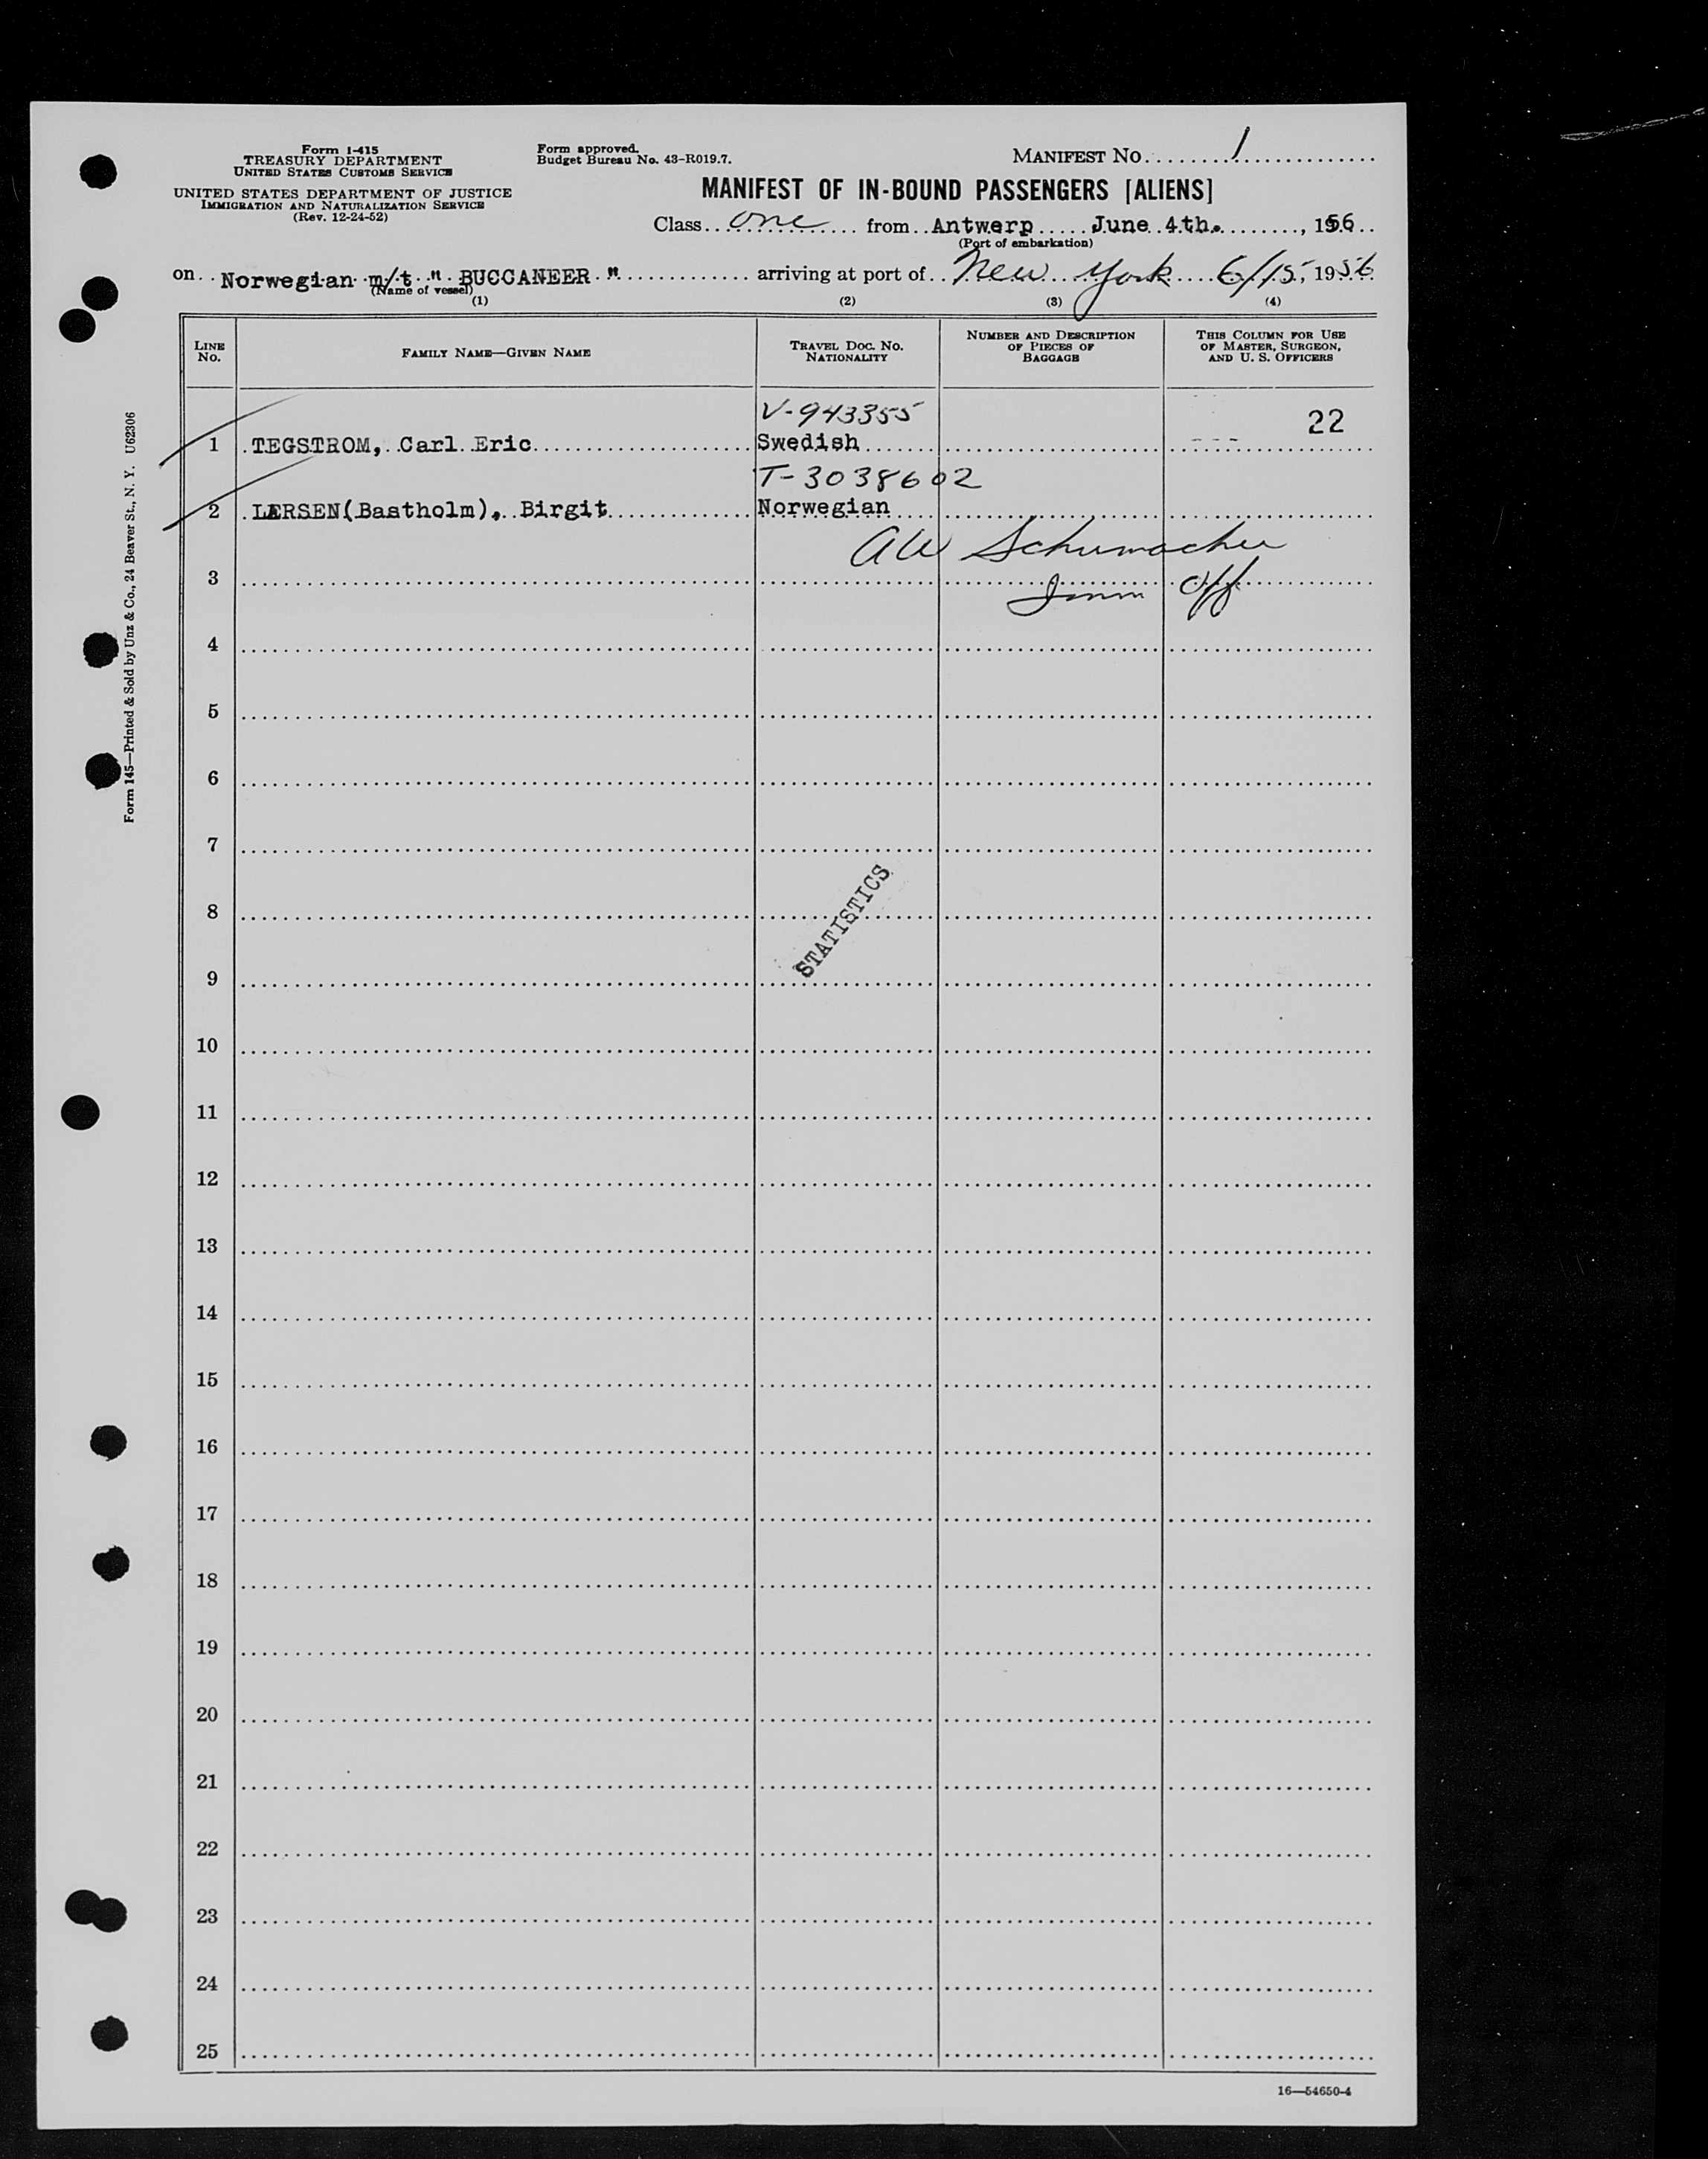 Form I-415
TREASURY DEPARTMENT
UNITED STATES CUSTOMS SERVICE
UNITED STATES DEPARTMENT OF JUSTICE
IMMIGRATION AND NATURALIZATION SERVICE
(Rev. 12-24-52)
Form approved.
Budget Bureau No. 43-R019.7.
MANIFEST NO. 1
MANIFEST OF IN-BOUND PASSENGERS [ALIENS]
Class one from Antwerp June 4th., 1956
(Port of embarkation)
on Norwegian m/t " BUCCANEER " arriving at port of New York 6/15, 1956
(Name of vessel)
(1) (2) (3) (4)
LINE NO.
FAMILY NAME—GIVEN NAME
TRAVEL DOC. NO. NATIONALITY
NUMBER AND DESCRIPTION OF PIECES OF BAGGAGE
THIS COLUMN FOR USE OF MASTER, SURGEON, AND U. S. OFFICERS
V-943355 22
1 TEGSTROM, Carl Eric Swedish
T-3038602
2 LERSEN(Bastholm), Birgit Norwegian
AW Schumacher
3
Imm Off
4
5
6
7
8
STATISTICS
9
10
11
12
13
14
15
16
17
18
19
20
21
22
23
24
25
16—54650-4
Form 145—Printed & Sold by Unz & Co., 24 Beaver St., N. Y. U62306